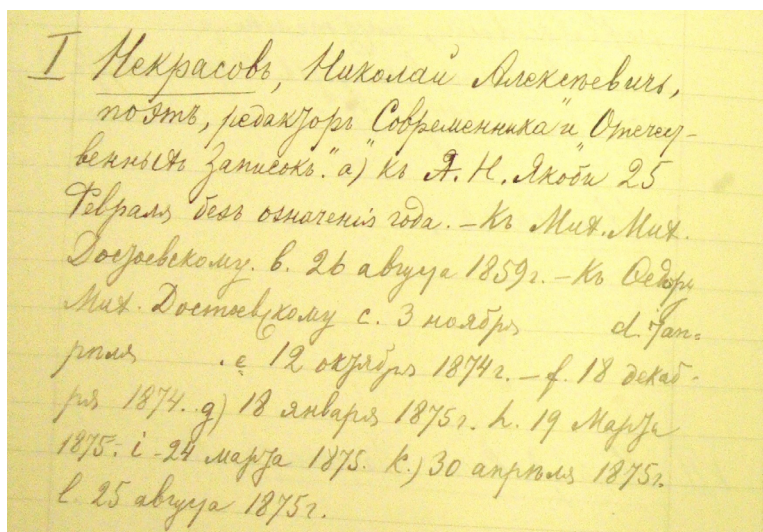 I Некрасовъ, Николай Алексѣевичъ,
поэтъ, редакторъ Современника" и Отечест-
венныхъ Записокъ." а) Къ А. Н. Якоби 25
Февраля безъ означенія года. – Къ Мих. Мих.
Достоевскому. b. 26 августа 1859 г. – Къ Ѳедору
Мих. Достоевскому c. 3 ноября d. 7 ап=
рѣля . e 12 октября 1874 г. – f. 18 декаб-
ря 1874. g) 18 января 1875 г. h. 19 Марта
1875. i - 24 марта 1875. k.) 30 апрѣля 1875 г.
l. 25 августа 1875 г.